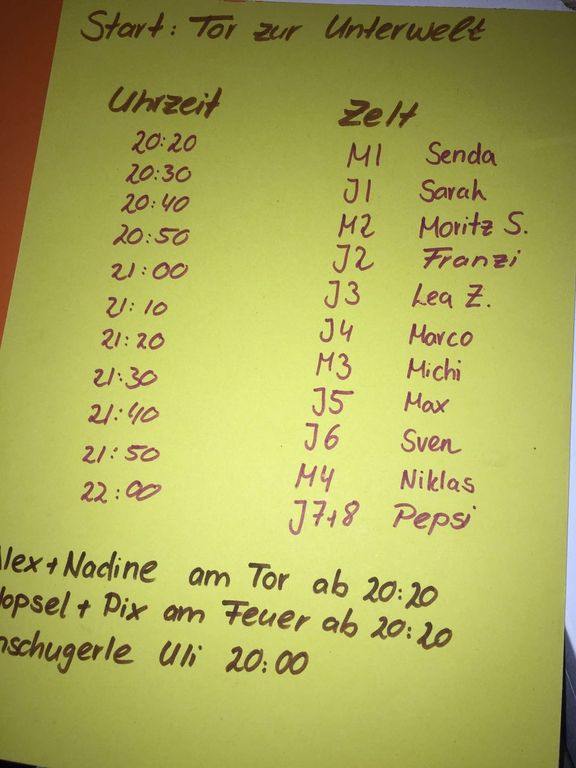 Start: Tor zur Unterwelt
Uhrzeit Zelt
20:20 M1 Senda
20:30 J1 Sarah
20:40 M2 Moritz S.
20:50 J2 Franzi
21:00 J3 Lea Z.
21:10 J4 Marco
21:20 M3 Michi
21:30 J5 Max
21:40 J6 Sven
21:50 M4 Niklas
22:00 J7+8 Pepsi
lex+Nadine am Tor ab 20:20
opsel + Pix am Feuer ab 20:20
schugerle Uli 20:00